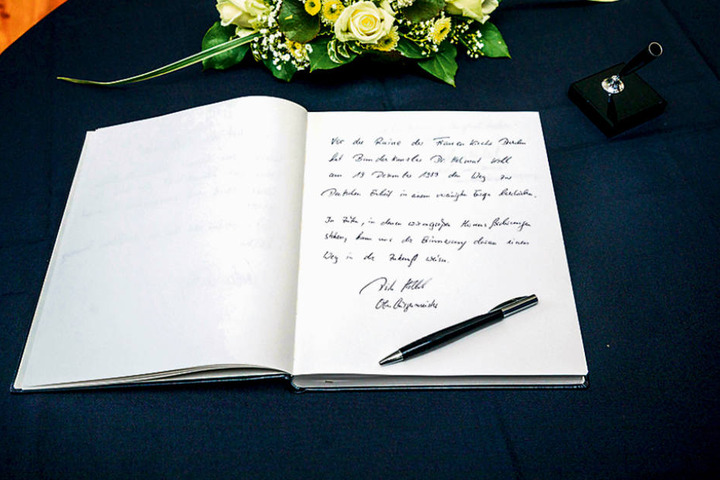 Vor der Ruine der Frauenkirche Dresden
hat Bundeskanzler Dr. Helmut Kohl
am 19 Dezember 1989 den Weg zur
Deutschen Einheit in einem vereinigten Europa beschrieben.
In Zeiten, in denen wir vor großen Herausforderungen
stehen, kann uns die Erinnerung daran einen
Weg in die Zukunft weisen.
Dirk Hilbert
Oberbürgermeister